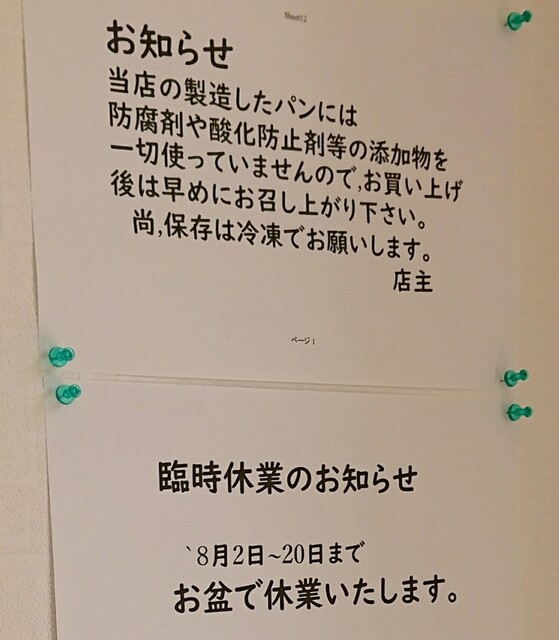 Sheet12
お知らせ
当店の製造したパンには
防腐剤や酸化防止剤等の添加物を
一切使っていませんので,お買い上げ
後は早めにお召し上がり下さい。
尚,保存は冷凍でお願いします。
店主
ページ 1
臨時休業のお知らせ
`8月2日~20日まで
お盆で休業いたします。